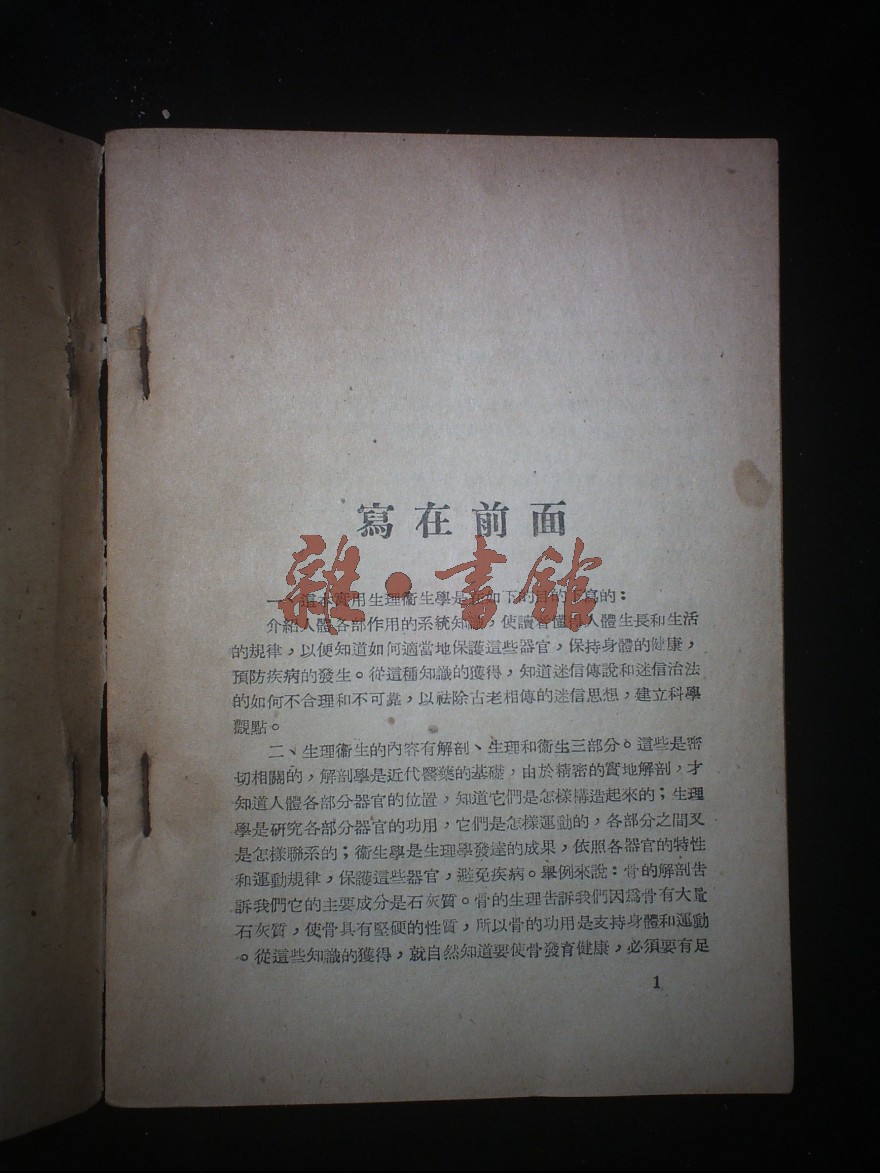 寫在前面
雜·書館
一、這本實用生理衞生學是在如下的目的下寫的：
介紹人體各部作用的系統知識，使讀者懂得人體生長和生活
的規律，以便知道如何適當地保護這些器官，保持身體的健康，
預防疾病的發生。從這種知識的獲得，知道迷信傳說和迷信治法
的如何不合理和不可靠，以祛除古老相傳的迷信思想，建立科學
觀點。
二、生理衞生的內容有解剖、生理和衞生三部分。這些是密
切相關的，解剖學是近代醫藥的基礎，由於精密的實地解剖，才
知道人體各部分器官的位置，知道它們是怎樣構造起來的；生理
學是研究各部分器官的功用，它們是怎樣運動的，各部分之間又
是怎樣聯系的；衞生學是生理學發達的成果，依照各器官的特性
和運動規律，保護這些器官，避免疾病。舉例來說：骨的解剖告
訴我們它的主要成分是石灰質。骨的生理告訴我們因爲骨有大量
石灰質，使骨具有堅硬的性質，所以骨的功用是支持身體和運動
。從這些知識的獲得，就自然知道要使骨發育健康，必須要有足
1